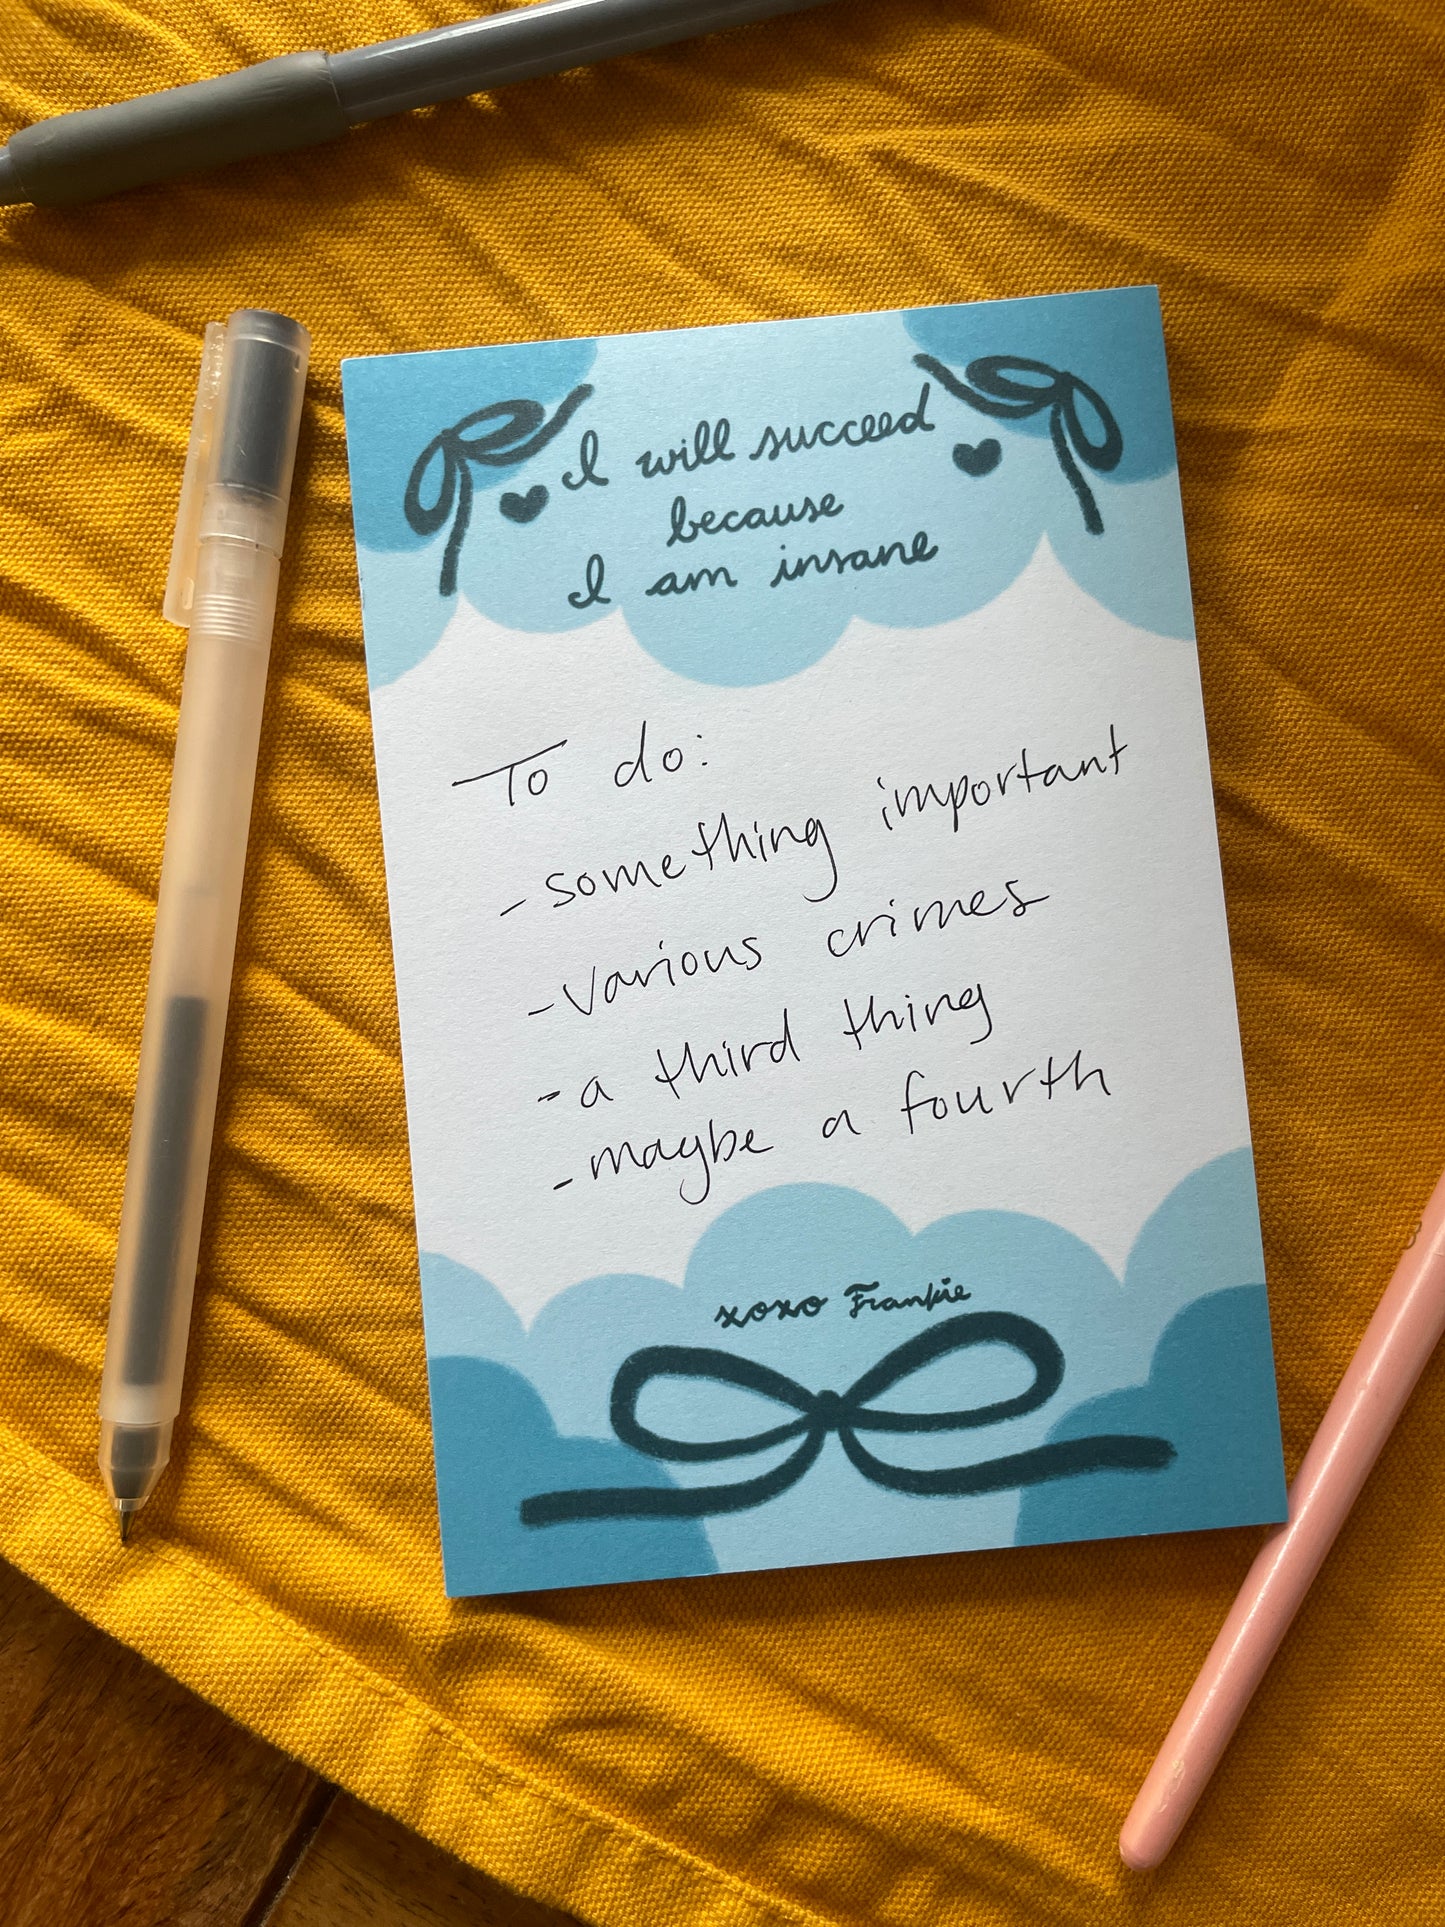 I will succeed
because
I am insane
To do:
- something important
- various crimes
- a third thing
- maybe a fourth
xoxo Frankie